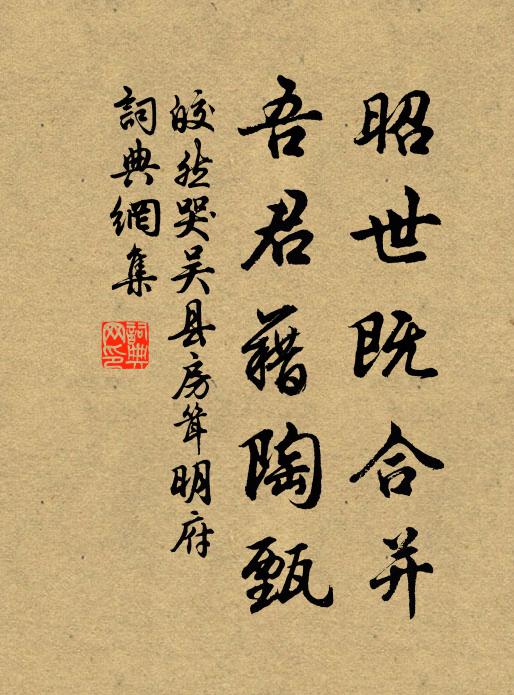 昭世既合并
吾君藉陶甄
皎然哭吴县房耸明府
詞典網集
詞典
网印